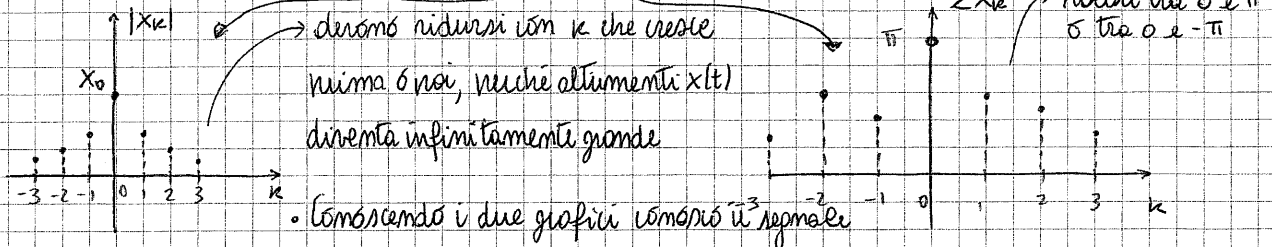 |Xk|
X0
-3 -2 -1 0 1 2 3 k
→ devono ridursi con k che cresce
prima o poi, perché altrimenti x(t)
diventa infinitamente grande
• Conoscendo i due grafici conosco il segnale
∠Xk
π
-3 -2 -1 0 1 2 3 k
tra 0 e π
o tra 0 e -π